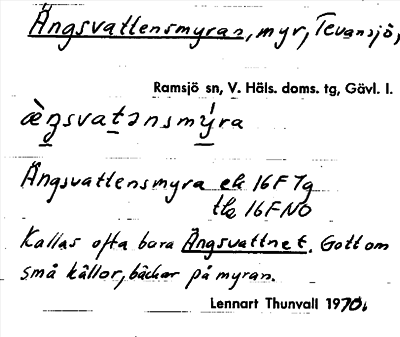 Ängsvattensmyran, myr, Tevansjö,
Ramsjö sn, V. Häls. doms. tg, Gävl. l.
æ̀ŋsvatənsmýra
Ängsvattensmyra ek 16F7g
tk 16FNO
Kallas ofta bara Ängsvattnet. Gott om
små källor, bäckar på myran.
Lennart Thunvall 1970.